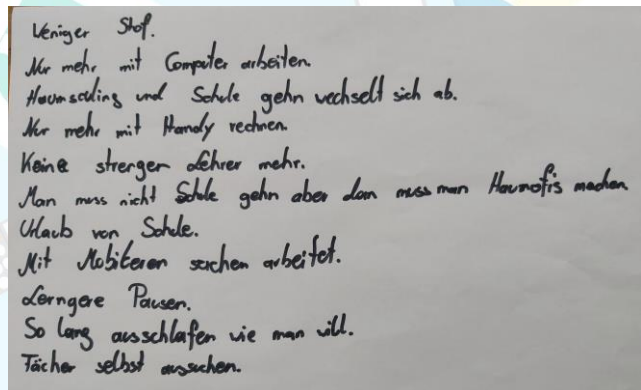 Weniger Stof.
Nur mehr mit Computer arbeiten.
Haumscüling und Schule gehn wechselt sich ab.
Nur mehr mit Handy rechnen.
Keine strengen Lehrer mehr.
Man muss nicht Schule gehn aber dan muss man Haumofis machen.
Urlaub von Schule.
Mit Mobileren sachen arbeitet.
Lerngere Pausen.
So lang ausschlafen wie man will.
Fächer selbst aussuchen.